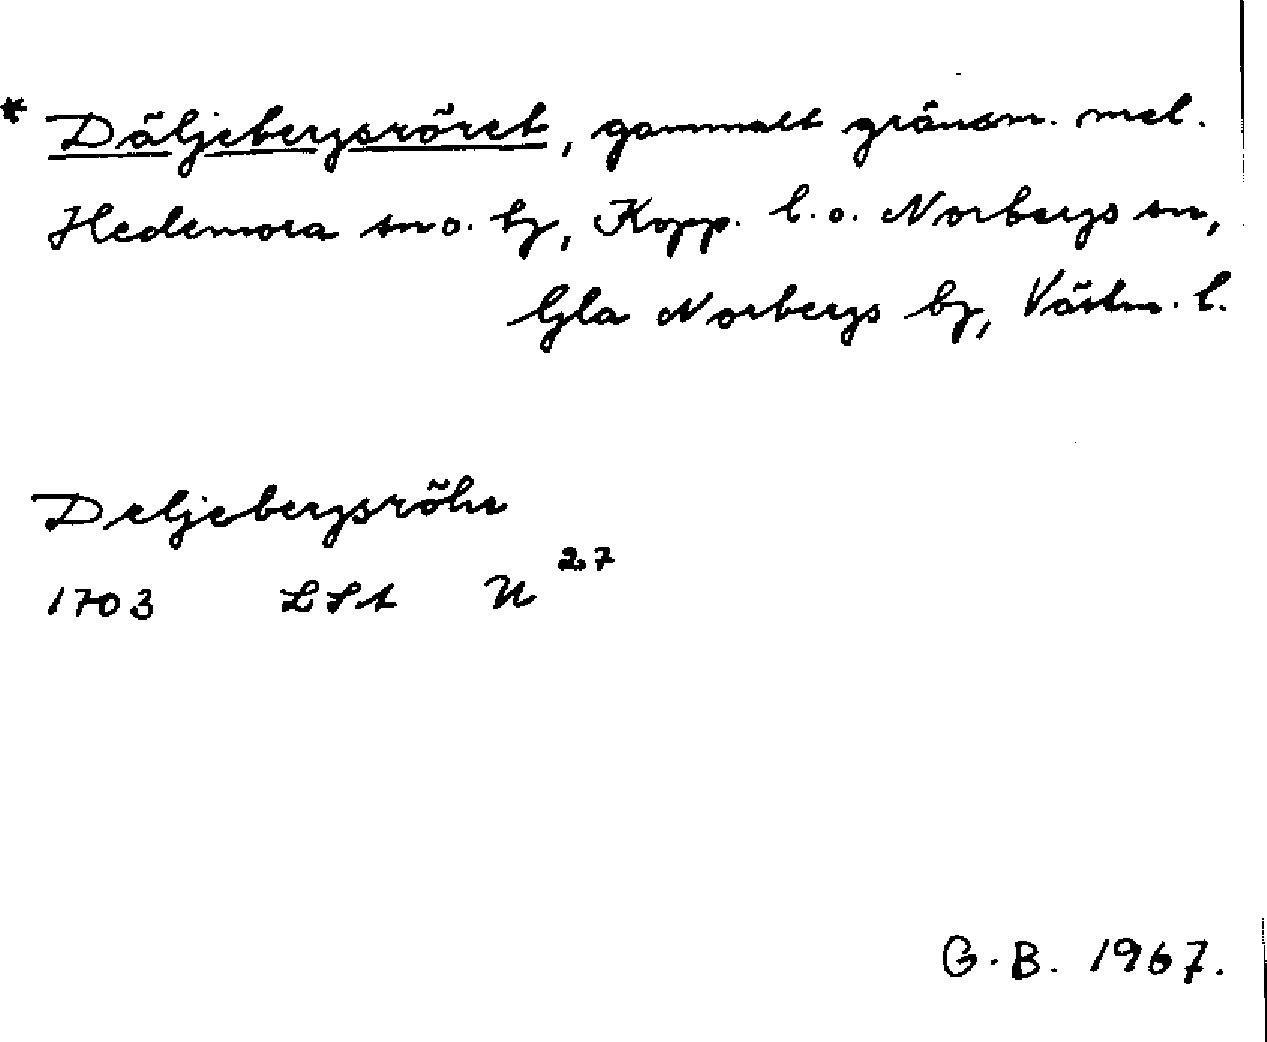 * Däljebergsröret, gammalt gränsm. mel.
Hedemora sn o. by, Kopp. l. o. Norbergs sn,
Gla Norbergs by, Västm. l.
Deljebergsröhr
1703 LSt U 27
G.B. 1967.